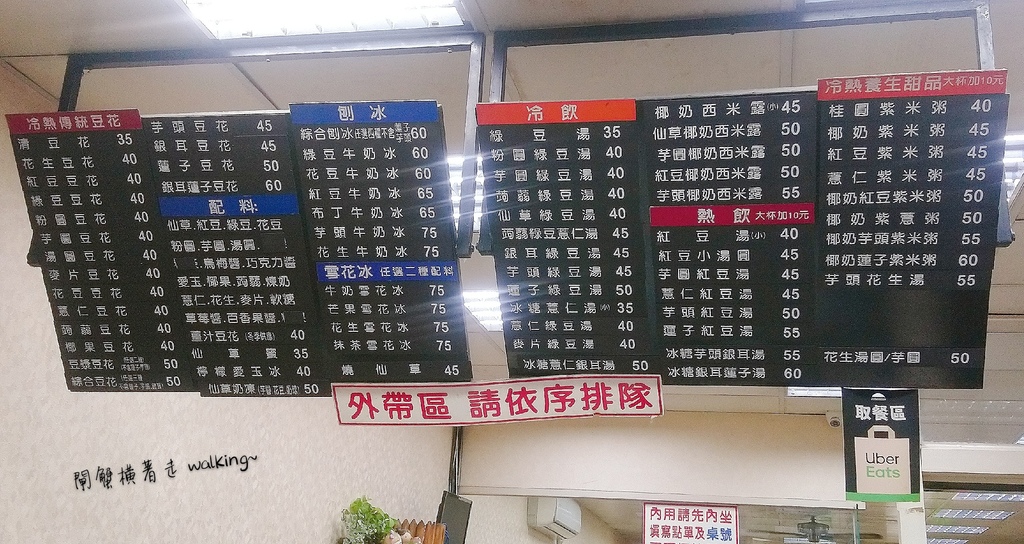 冷熱傳統豆花
清豆花 35
花生豆花 40
紅豆豆花 40
綠豆豆花 40
粉圓豆花 40
芋圓豆花 40
湯圓豆花 40
麥片豆花 40
花豆豆花 40
薏仁豆花 40
蒟蒻豆花 40
椰果豆花 40
豆漿豆花 50
綜合豆花 50
芋頭豆花 45
銀耳豆花 45
蓮子豆花 50
銀耳蓮子豆花 60
配料:
仙草.紅豆.綠豆.花豆
粉圓.芋圓.湯圓.
烏梅醬.巧克力醬
愛玉.椰果.蒟蒻.煉奶
薏仁.花生.麥片.軟糖
草莓醬.百香果醬
薑汁豆花(冬季供應) 40
仙草蜜 35
檸檬愛玉冰 40
仙草奶凍 50
刨冰
綜合刨冰 60
綠豆牛奶冰 60
花豆牛奶冰 60
紅豆牛奶冰 65
布丁牛奶冰 65
芋頭牛奶冰 75
花生牛奶冰 75
雪花冰 任選二種配料
牛奶雪花冰 75
芒果雪花冰 75
花生雪花冰 75
抹茶雪花冰 75
燒仙草 45
冷飲
綠豆湯 35
粉圓綠豆湯 40
芋圓綠豆湯 40
蒟蒻綠豆湯 40
仙草綠豆湯 40
蒟蒻綠豆薏仁湯 45
銀耳綠豆湯 45
芋頭綠豆湯 50
蓮子綠豆湯 50
冰糖薏仁湯(小) 35
薏仁綠豆湯 40
麥片綠豆湯 40
冰糖薏仁銀耳湯 50
椰奶西米露(小) 45
仙草椰奶西米露 50
芋圓椰奶西米露 50
紅豆椰奶西米露 50
芋頭椰奶西米露 55
熱飲 大杯加10元
紅豆湯(小) 40
紅豆小湯圓 45
芋圓紅豆湯 45
薏仁紅豆湯 45
芋頭紅豆湯 50
蓮子紅豆湯 55
冰糖芋頭銀耳湯 55
冰糖銀耳蓮子湯 60
冷熱養生甜品 大杯加10元
桂圓紫米粥 40
椰奶紫米粥 45
紅豆紫米粥 45
薏仁紫米粥 45
椰奶紅豆紫米粥 50
椰奶紫薏粥 50
椰奶芋頭紫米粥 55
椰奶蓮子紫米粥 60
芋頭花生湯 55
花生湯圓/芋圓 50
外帶區 請依序排隊
取餐區
Uber
Eats
內用請先內坐
填寫點單及桌號
閘蟹橫著走 walking~